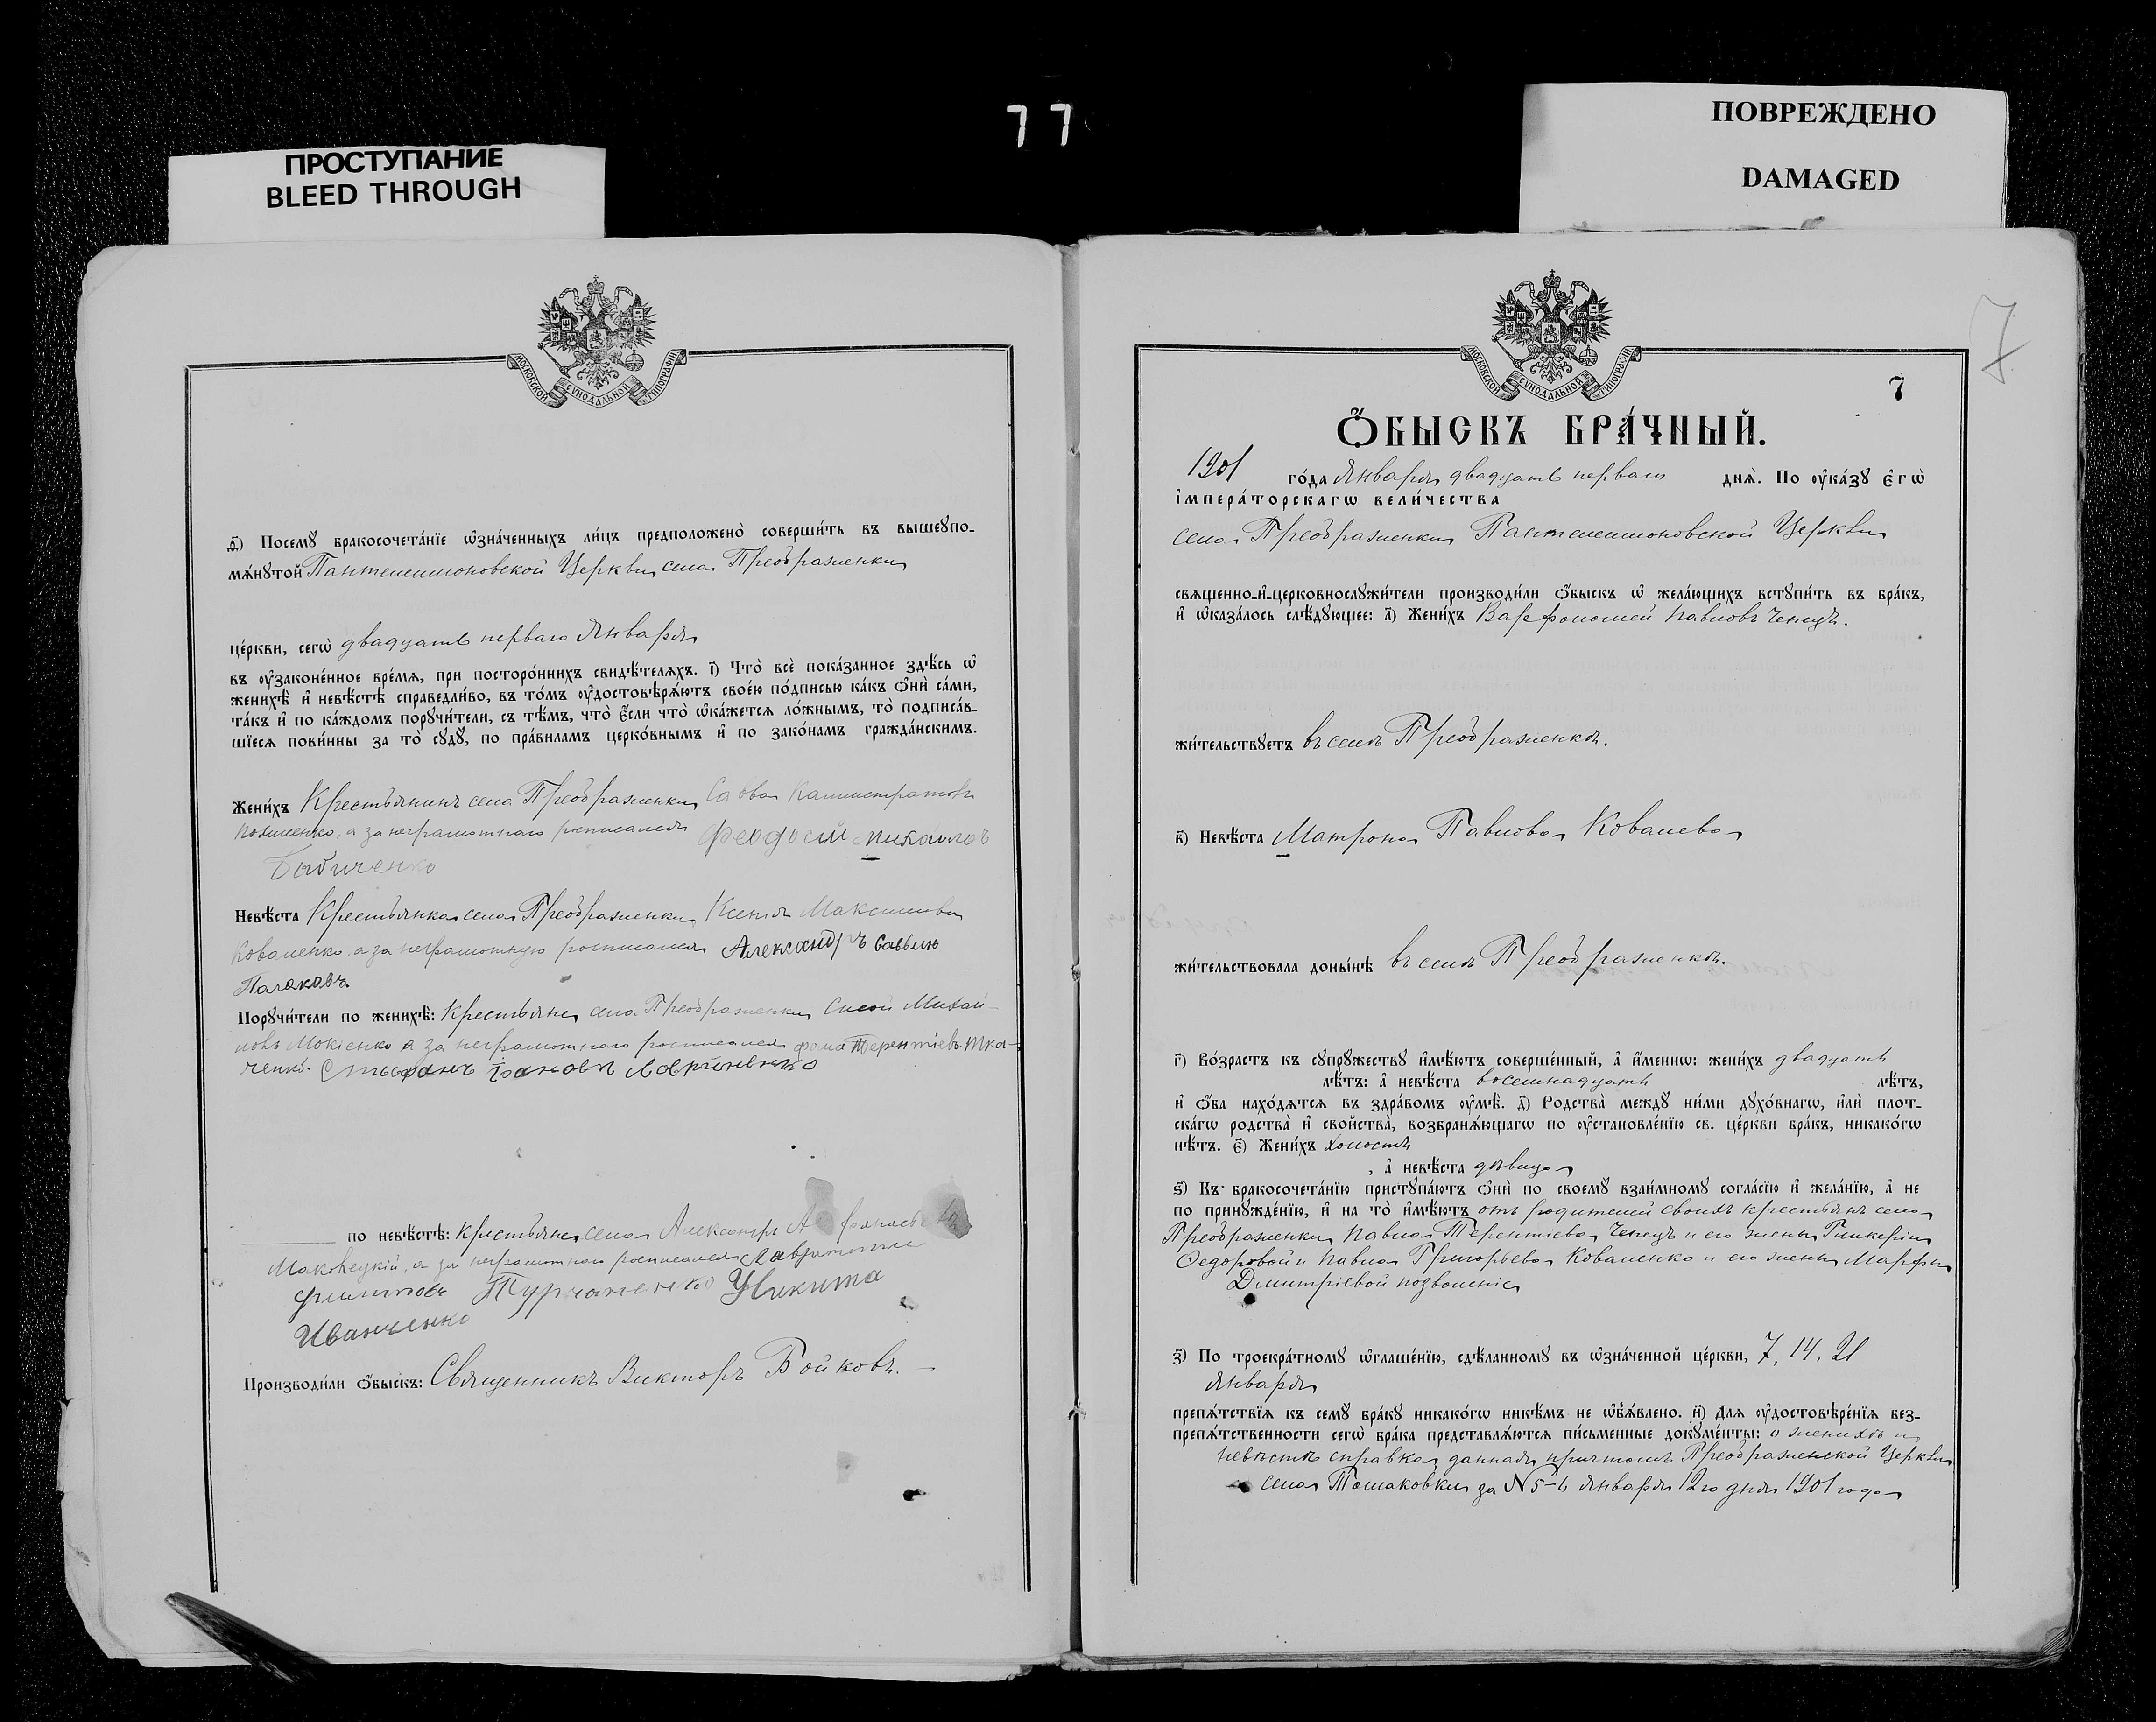 77
ПРОСТУПАНИЕ
BLEED THROUGH
ПОВРЕЖДЕНО
DAMAGED
МОСКОВСКОЙ СѴНОДАЛЬНОЙ ТИПОГРАФІИ
ѳ҃) Посемꙋ бракосочета́нїе ѡ҆зна́ченныхъ ли́цъ предположено̀ соверши́ть въ вышеꙋпо-
мѧ́нꙋтой Пантелеимоновской Церкви села Преображенки
це́ркви, сегѡ̀ двадцать перваго Января
въ ᲂу҆законе́нное вре́мѧ, при посторо́ннихъ свидѣ́телѧхъ. і҃) Что̀ всѐ пока́занное здѣ́сь ѡ҆
женихѣ̀ и҆ невѣ́стѣ справедли́во, въ то́мъ ᲂу҆достовѣрѧ́ютъ свое́ю по́дписью ка́къ ѻ҆нѝ са́ми,
та́къ и҆ по ка́ждомъ порꙋчи́тели, съ тѣ́мъ, что̀ є҆́сли что̀ ѡ҆ка́жетсѧ ло́жнымъ, то̀ подписа́в-
шїесѧ пови́нны за то̀ сꙋдꙋ̀, по пра́виламъ церко́внымъ и҆ по зако́намъ гражда́нскимъ.
Жени́хъ Крестьянинъ села Преображенки Савва Каллистратовъ
а за неграмотнаго росписался Феодосій Михаиловъ
Бабиченко
Невѣ́ста Крестьянка села Преображенки Ксенія Максимова
Коваленко, а за неграмотную росписался Александръ
Порꙋчи́тели по женихѣ̀: Крестьяне села Преображенки Сисой Михай-
ловъ Мокіенко а за неграмотнаго росписался фома Терентіевъ Тка-
ченко. Стефанъ Івановъ
по невѣ́стѣ: крестьяне села Александръ
а за неграмотнаго росписался
Никита
Иванченко
Производи́ли ѻ҆́быскъ: Священникъ Викторъ Бойковъ.
7
МОСКОВСКОЙ СѴНОДАЛЬНОЙ ТИПОГРАФІИ
7
Ѻ҆́БЫСКЪ БРА́ЧНЫЙ.
1901 го́да Января двадцать перваго днѧ̀. По ᲂу҆ка́зꙋ є҆гѡ̀
і҆мпера́торскагѡ вели́чества
села Преображенки Пантелеимоновской Церкви
свѧщенно-и҆-церковнослꙋжи́тели производи́ли ѻ҆́быскъ ѡ҆ жела́ющихъ встꙋпи́ть въ бра́къ,
и҆ ѡ҆каза́лось слѣ́дꙋющее: а҃) Жени́хъ Варфоломей Павловъ Чепецъ.
жи́тельствꙋетъ въ селѣ Преображенкѣ.
в҃) Невѣ́ста Матрона Павлова Ковалева
жи́тельствовала доны́нѣ въ селѣ Преображенкѣ.
г҃) Во́зрастъ къ сꙋпрꙋ́жествꙋ и҆мѣ́ютъ соверше́нный, а҆ и҆́меннѡ: жени́хъ двадцать
лѣ́тъ: а҆ невѣ́ста восемнадцать лѣ́тъ,
и҆ ѻ҆́ба нахо́дѧтсѧ въ здра́вомъ ᲂу҆мѣ̀. д҃) Родства̀ междꙋ̀ ни́ми дꙋхо́внагѡ, и҆лѝ плот-
ска́гѡ родства̀ и҆ сво́йства̀, возбранѧ́ющагѡ по ᲂу҆становле́нїю св. це́ркви бра́къ, никако́гѡ
нѣ́тъ. є҃) Жени́хъ холостъ
, а҆ невѣ́ста дѣвица
ѕ҃) Къ бракосочета́нїю пристꙋпа́ютъ ѻ҆нѝ по своемꙋ̀ взаи́мномꙋ согла́сїю и҆ жела́нїю, а҆ не
по принꙋжде́нїю, и҆ на то̀ и҆мѣ́ютъ отъ родителей своихъ крестьянъ села
Преображенки Павла Терентіева Чепецъ и его жены Гликеріи
Ѳедоровой и Павла Григорьева Коваленко и его жены Марфы
Димитріевой позволеніе
з҃) По троекра́тномꙋ ѡ҆глаше́нїю, сдѣ́ланномꙋ въ ѡ҆зна́ченной це́ркви, 7, 14, 21
Января
препѧ́тствїѧ къ семꙋ̀ бра́кꙋ никако́гѡ никѣ́мъ не ѡ҆бъѧ́влено. и҃) Длѧ ᲂу҆достовѣре́нїѧ без-
препѧ́тственности сегѡ̀ бра́ка представлѧ́ютсѧ пи́сьменные докꙋме́нты: о женихѣ и
невѣстѣ справка, данная причтомъ Преображенской Церкви
села Тошаковки за № 5-6 Января 12го дня 1901 года